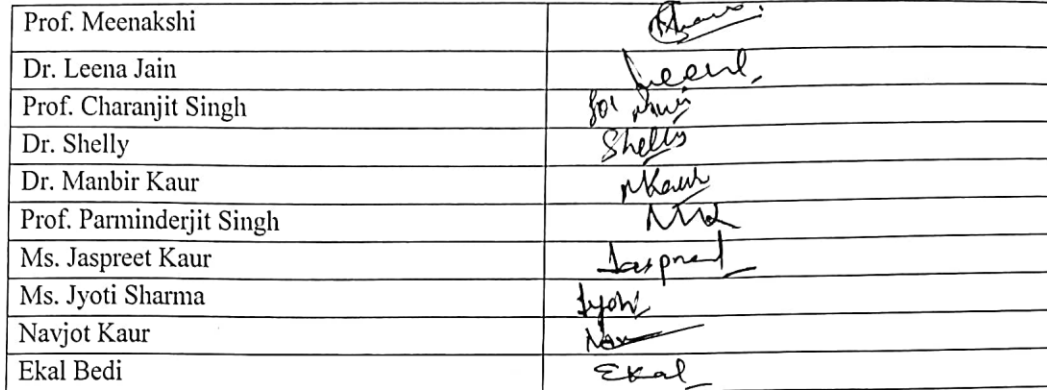 Prof. Meenakshi
Dr. Leena Jain Leena
Prof. Charanjit Singh for
Dr. Shelly Shelly
Dr. Manbir Kaur MKaur
Prof. Parminderjit Singh
Ms. Jaspreet Kaur Jaspreet
Ms. Jyoti Sharma Jyoti
Navjot Kaur Nav
Ekal Bedi Ekal